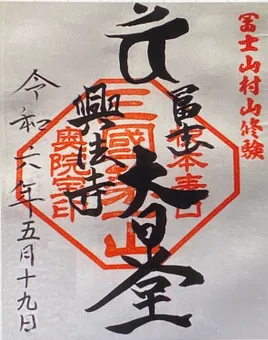 冨士山村山修験
冨士山
大日堂
興法寺
令和六年五月十九日
三國第一山
奥院室印